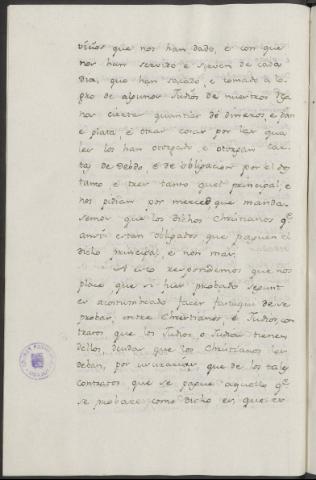 vicios que nos han dado, e con que
nos han servido e sirven de cada
dia, que han sacado, e tomado a lo-
gro de algunos Judios de nuestros Rg
nos ciertas quantias de dineros, e pan
e plata, e otras cosas por las qua
les les han otorgado, e otorgan car
tas de debdo, e de obligacion por el do
tanto e tres tanto quel principal, e
nos pidian por merced que manda-
semos que los dichos Christianos q.
ansi estan obligados que paguen el
dicho principal, e non mas.
A esto respondemos que nos
place que si fuer probado segunt
es acostumbrado facer fasta aqui de se
probar, entre Christianos e Judios, con
tratos que los Judios, o Judias tienen
dellos, deudas que los Christianos les
deban, por usurarias, que de los tales
contratos que se pague aquello q.
se probare como dicho es, que es